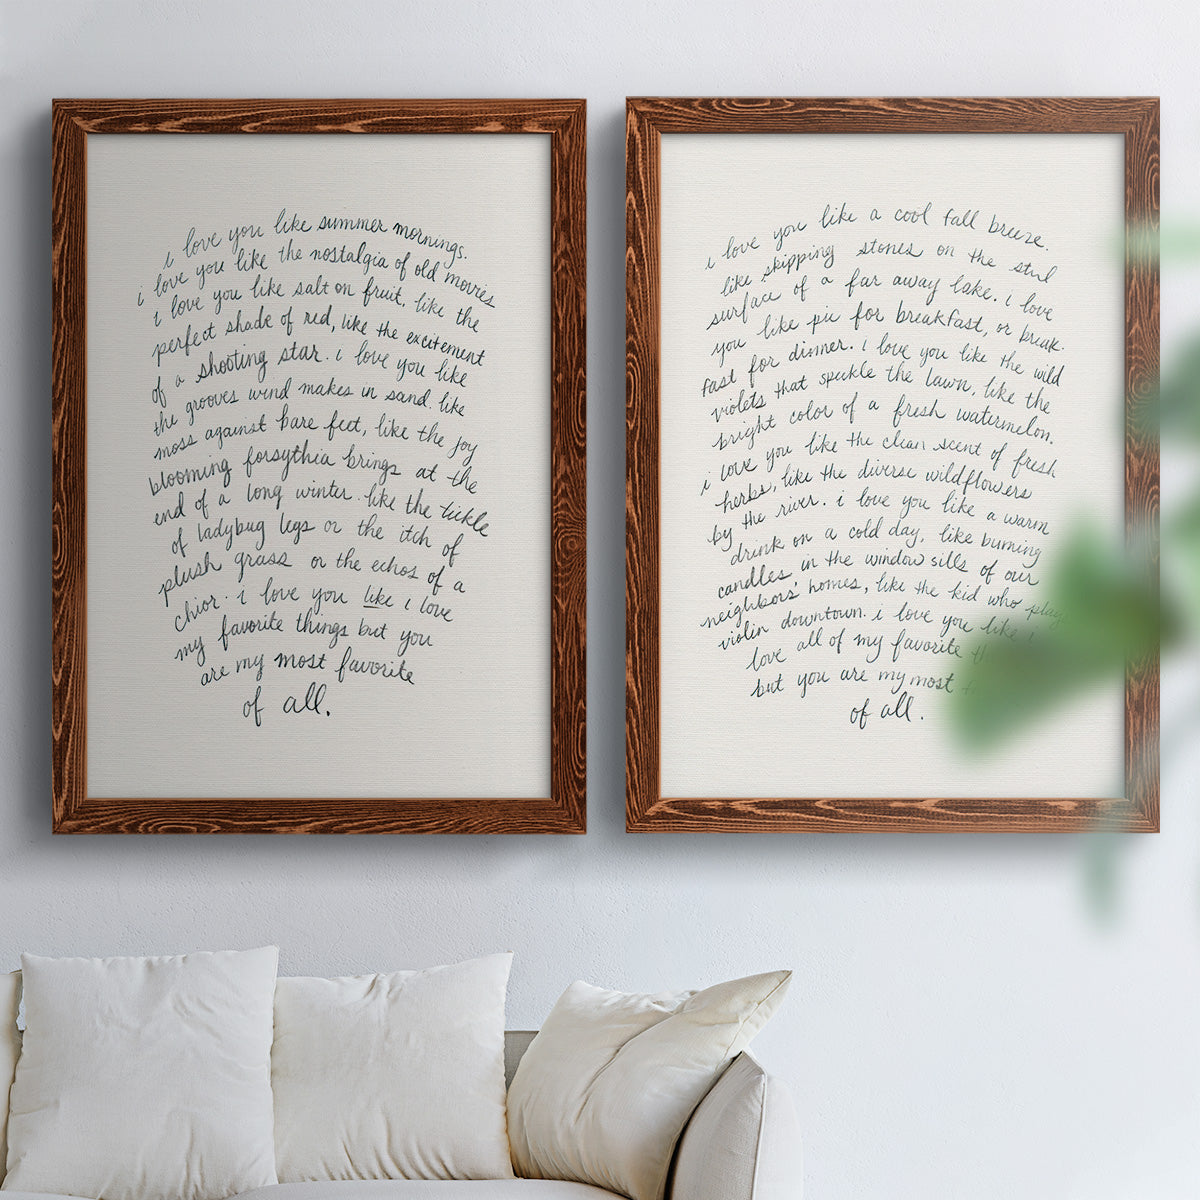 i love you like summer mornings.
i love you like the nostalgia of old movies
i love you like salt on fruit, like the
perfect shade of red, like the excitement
of a shooting star. i love you like
the grooves wind makes in sand. like
moss against bare feet, like the joy
blooming forsythia brings at the
end of a long winter. like the tickle
of ladybug legs or the itch of
plush grass or the echos of a
chior. i love you like i love
my favorite things but you
are my most favorite
of all.
i love you like a cool fall breeze.
like skipping stones on the still
surface of a far away lake. i love
you like pie for breakfast, or break-
fast for dinner. i love you like the wild
violets that speckle the lawn, like the
bright color of a fresh watermelon.
i love you like the clean scent of fresh
herbs, like the diverse wildflowers
by the river. i love you like a warm
drink on a cold day, like burning
candles in the window sills of our
neighbors' homes, like the kid who plays
violin downtown. i love you like i
love all of my favorite
but you are my most
of all.